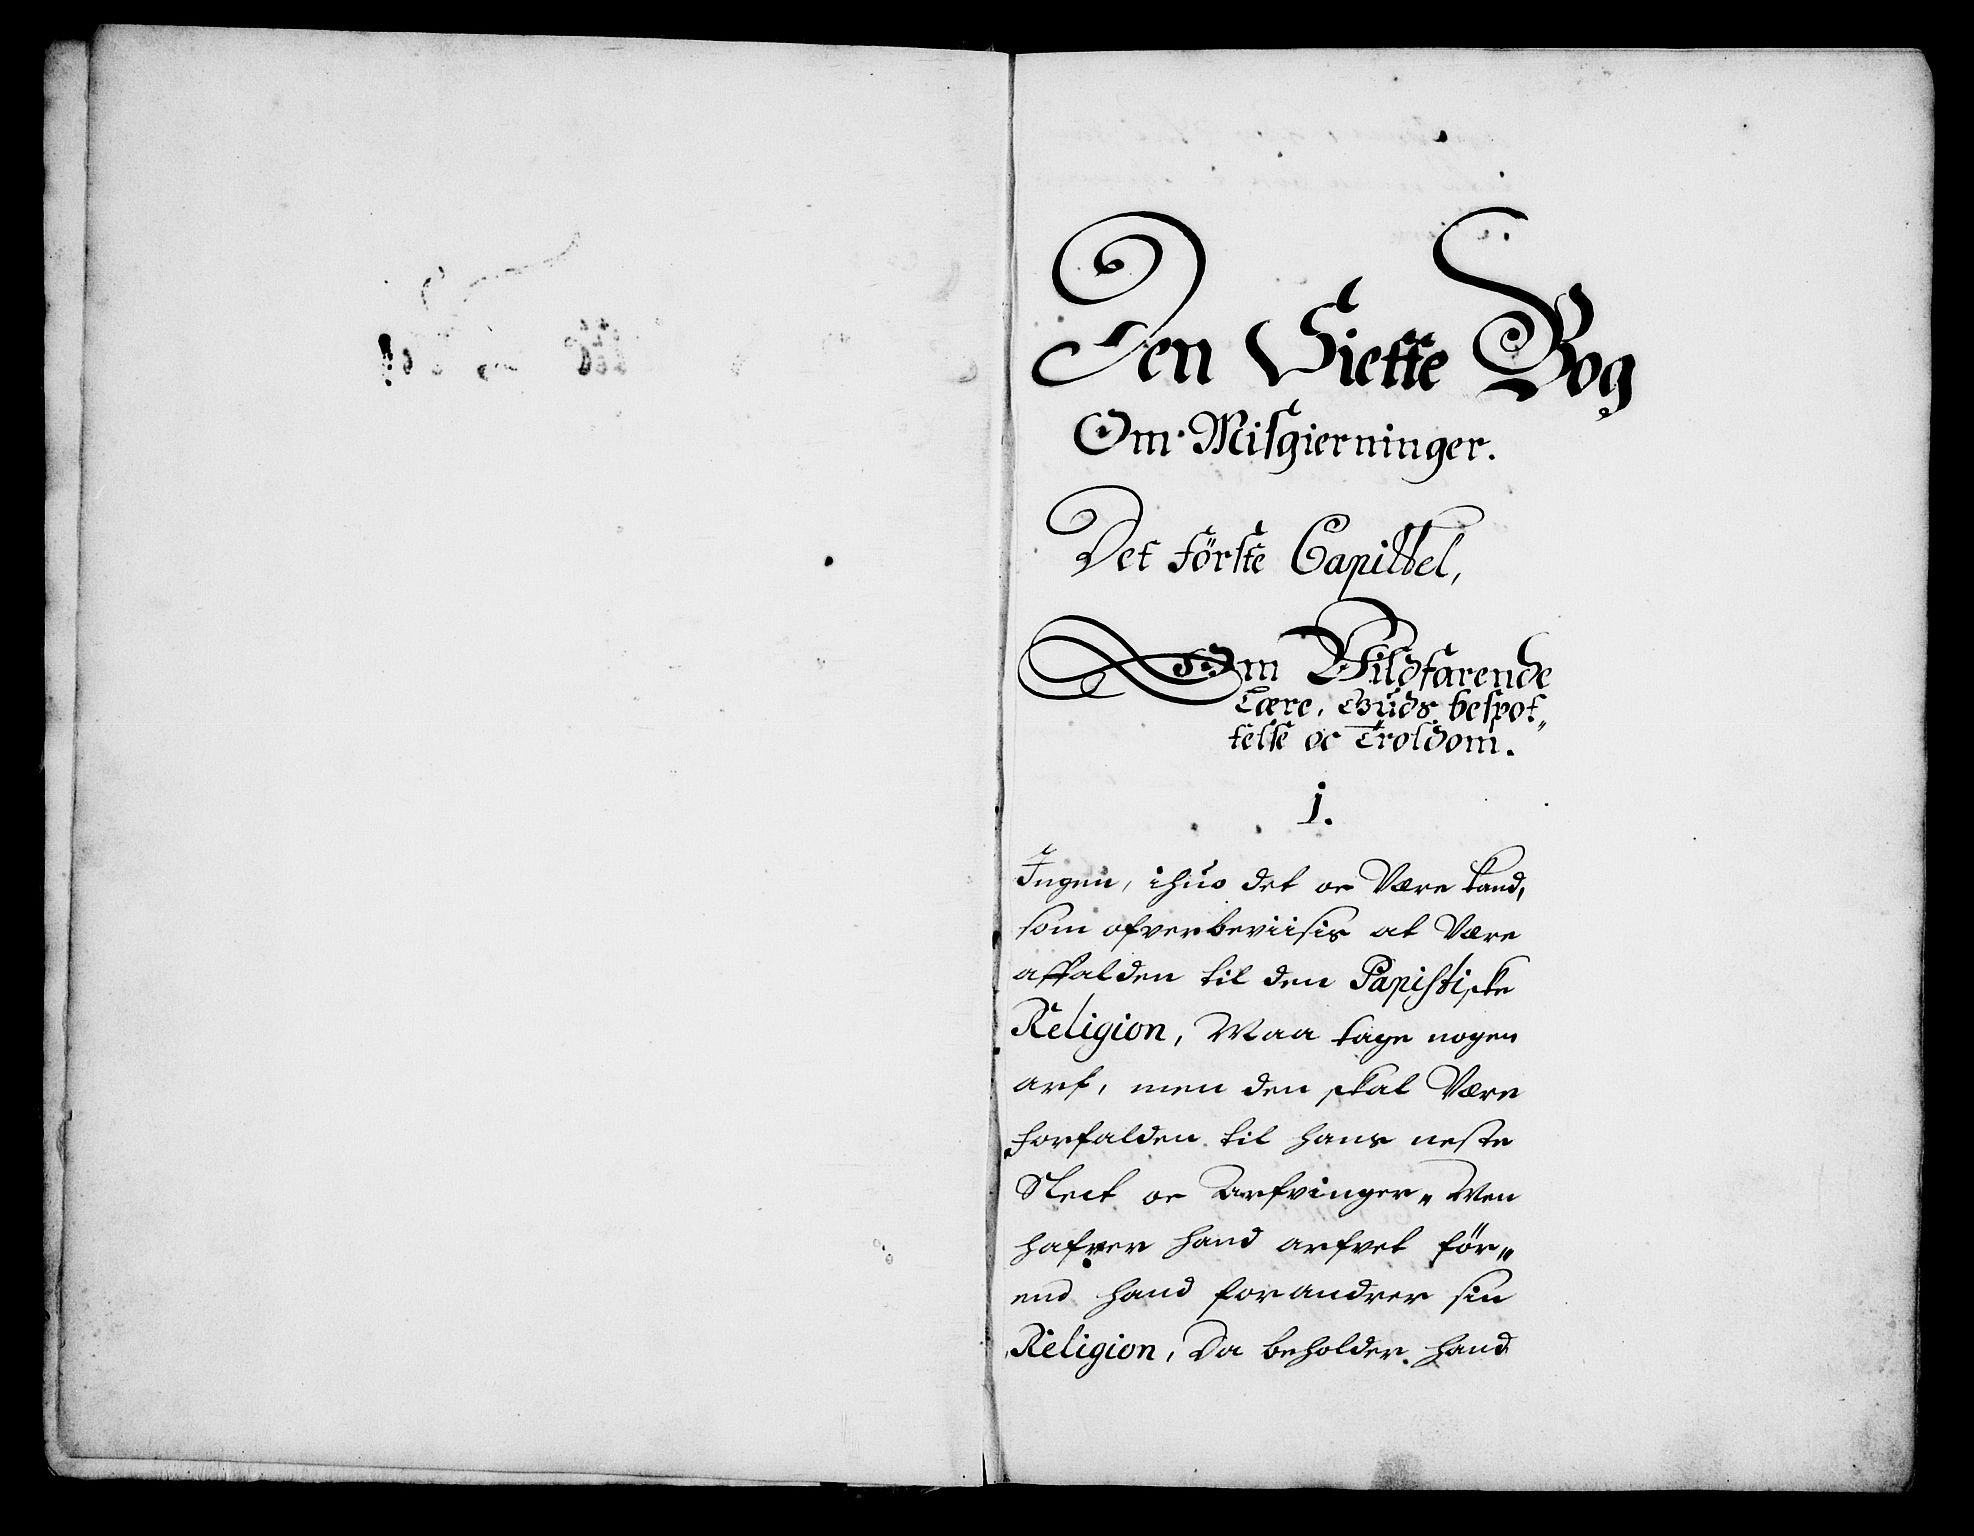 Den Siette Bog
Om Misgierninger.
Det förste Capittel,
Om Vildfarende
Lære, Guds bespot„
telse oc Troldom.
1.
Ingen, ihuo det oc Være kand,
som ofverbeviisis at Være
affalden til den Papistiske
Religion, Maa tage nogen
arf, men den skal Være
forfalden til hans neste
Slect oc Arfvinger„ Men
hafver hand arfvet för„
end hand forandrer sin
Religion, Da beholder hand